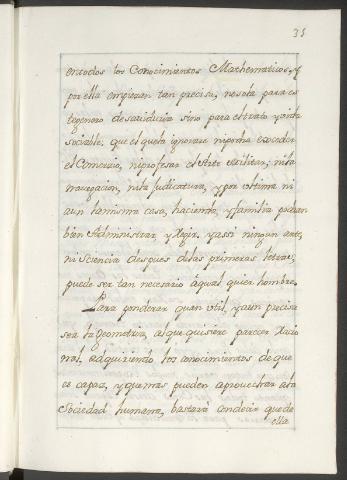 35
entodos los Conocimientos Mathematicos, y
por ella empiezan tan precisa, nosolo para es
te genero de sabiduria sino para eltrato, y vida
sociable, que el quela ignorare nipodra exceder
el Comercio, niprofesar el Arte Militar, nila
navegacion, nila Judicatura, y por ultimo ni
aun lamisma casa, hacienda, y familia podran
bien Administrar y Regir, y assi ningun arte,
ni Sciencia despues delas primeras letras,
puede ser tan necesario aqual quier hombre.
Para ponderar quan util, y aun precisa
sea la Geometria, alque quisiere parecer Racio
nal, adquiriendo los conocimientos de que
es capaz, y quemas pueden aprovechar ala
Sociedad humana, bastará condecir quede
ella